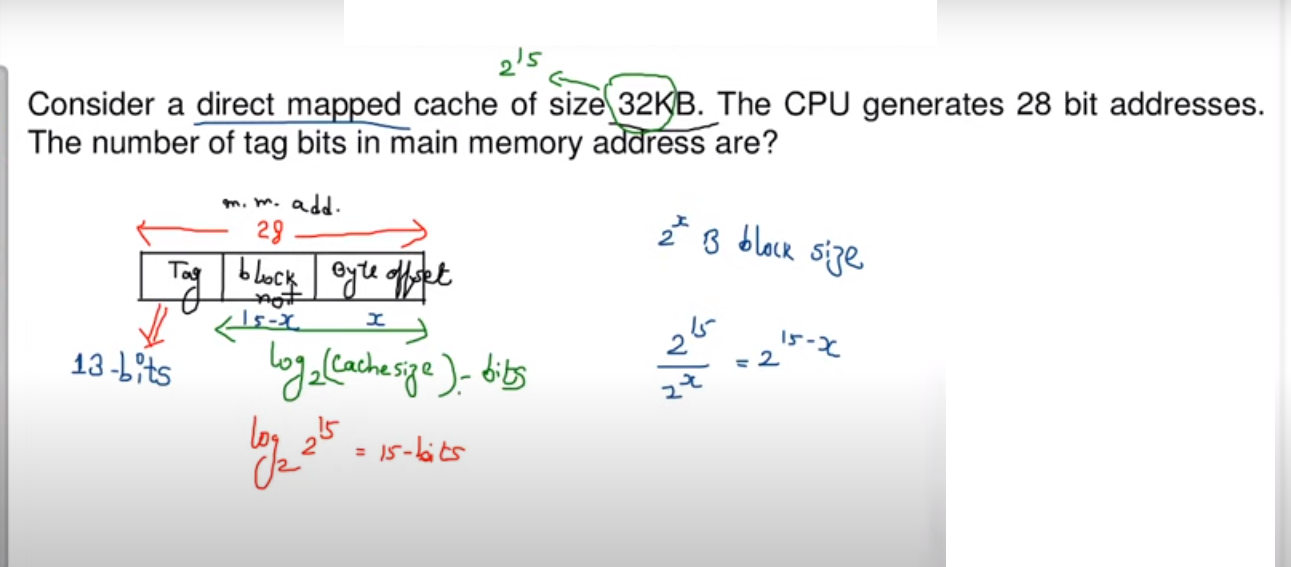 2^15
Consider a direct mapped cache of size 32KB. The CPU generates 28 bit addresses.
The number of tag bits in main memory address are?
m. m. add.
28
Tag block not Byte offset
15-x x
13-bits
log₂(cache size)- bits
log₂ 2^15 = 15-bits
2^x B block size
2^15/2^x = 2^15-x